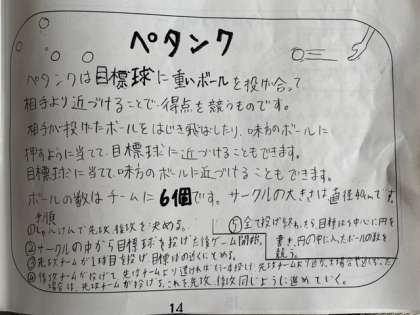 ペタンク
ペタンクは目標球に重いボールを投げ合って
相手より近づけることで得点を競うものです。
相手が投げたボールをはじき飛ばしたり、味方のボールに
押すように当てて、目標球に近づけることもできます。
目標球に当てて、味方のボールに近づけることもできます。
ボールの数はチームに6個です。サークルの大きさは直径
手順
①じゃんけんで先攻、後攻を決める。
②サークルの中から目標球を投げた後ゲーム開始。
③先攻チームが1球目を投げ目標球の近くにとめる。
④後攻チームが投げて、先攻チームより
場合は、先攻チームが投げる。これを先攻、後攻同じように進めていく。
⑤全て投げ終わったら、目標球を中心に円を
書き、円の中に入ったボールの数を
競う。
14